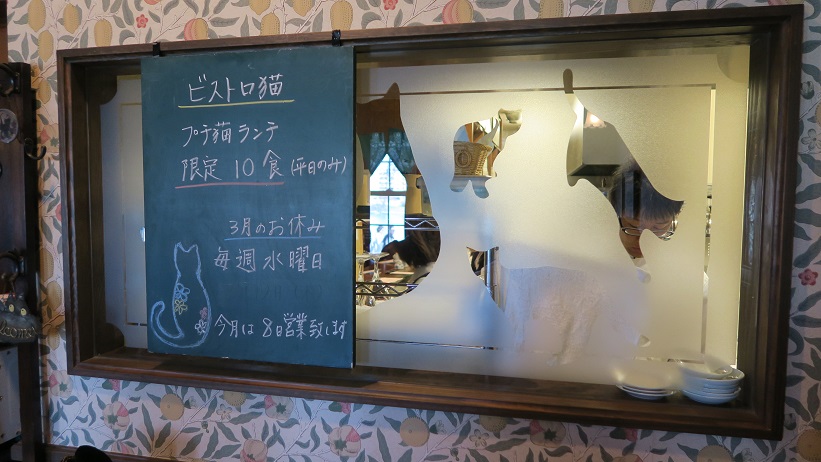 ビストロ猫
プチ猫ランチ
限定10食(平日のみ)
3月のお休み
毎週水曜日
今月は8日営業致します